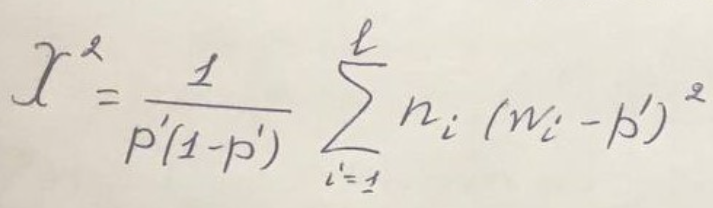 χ² = 1/(p'(1-p')) ∑_{i=1}^{l} n_i (w_i - p')²